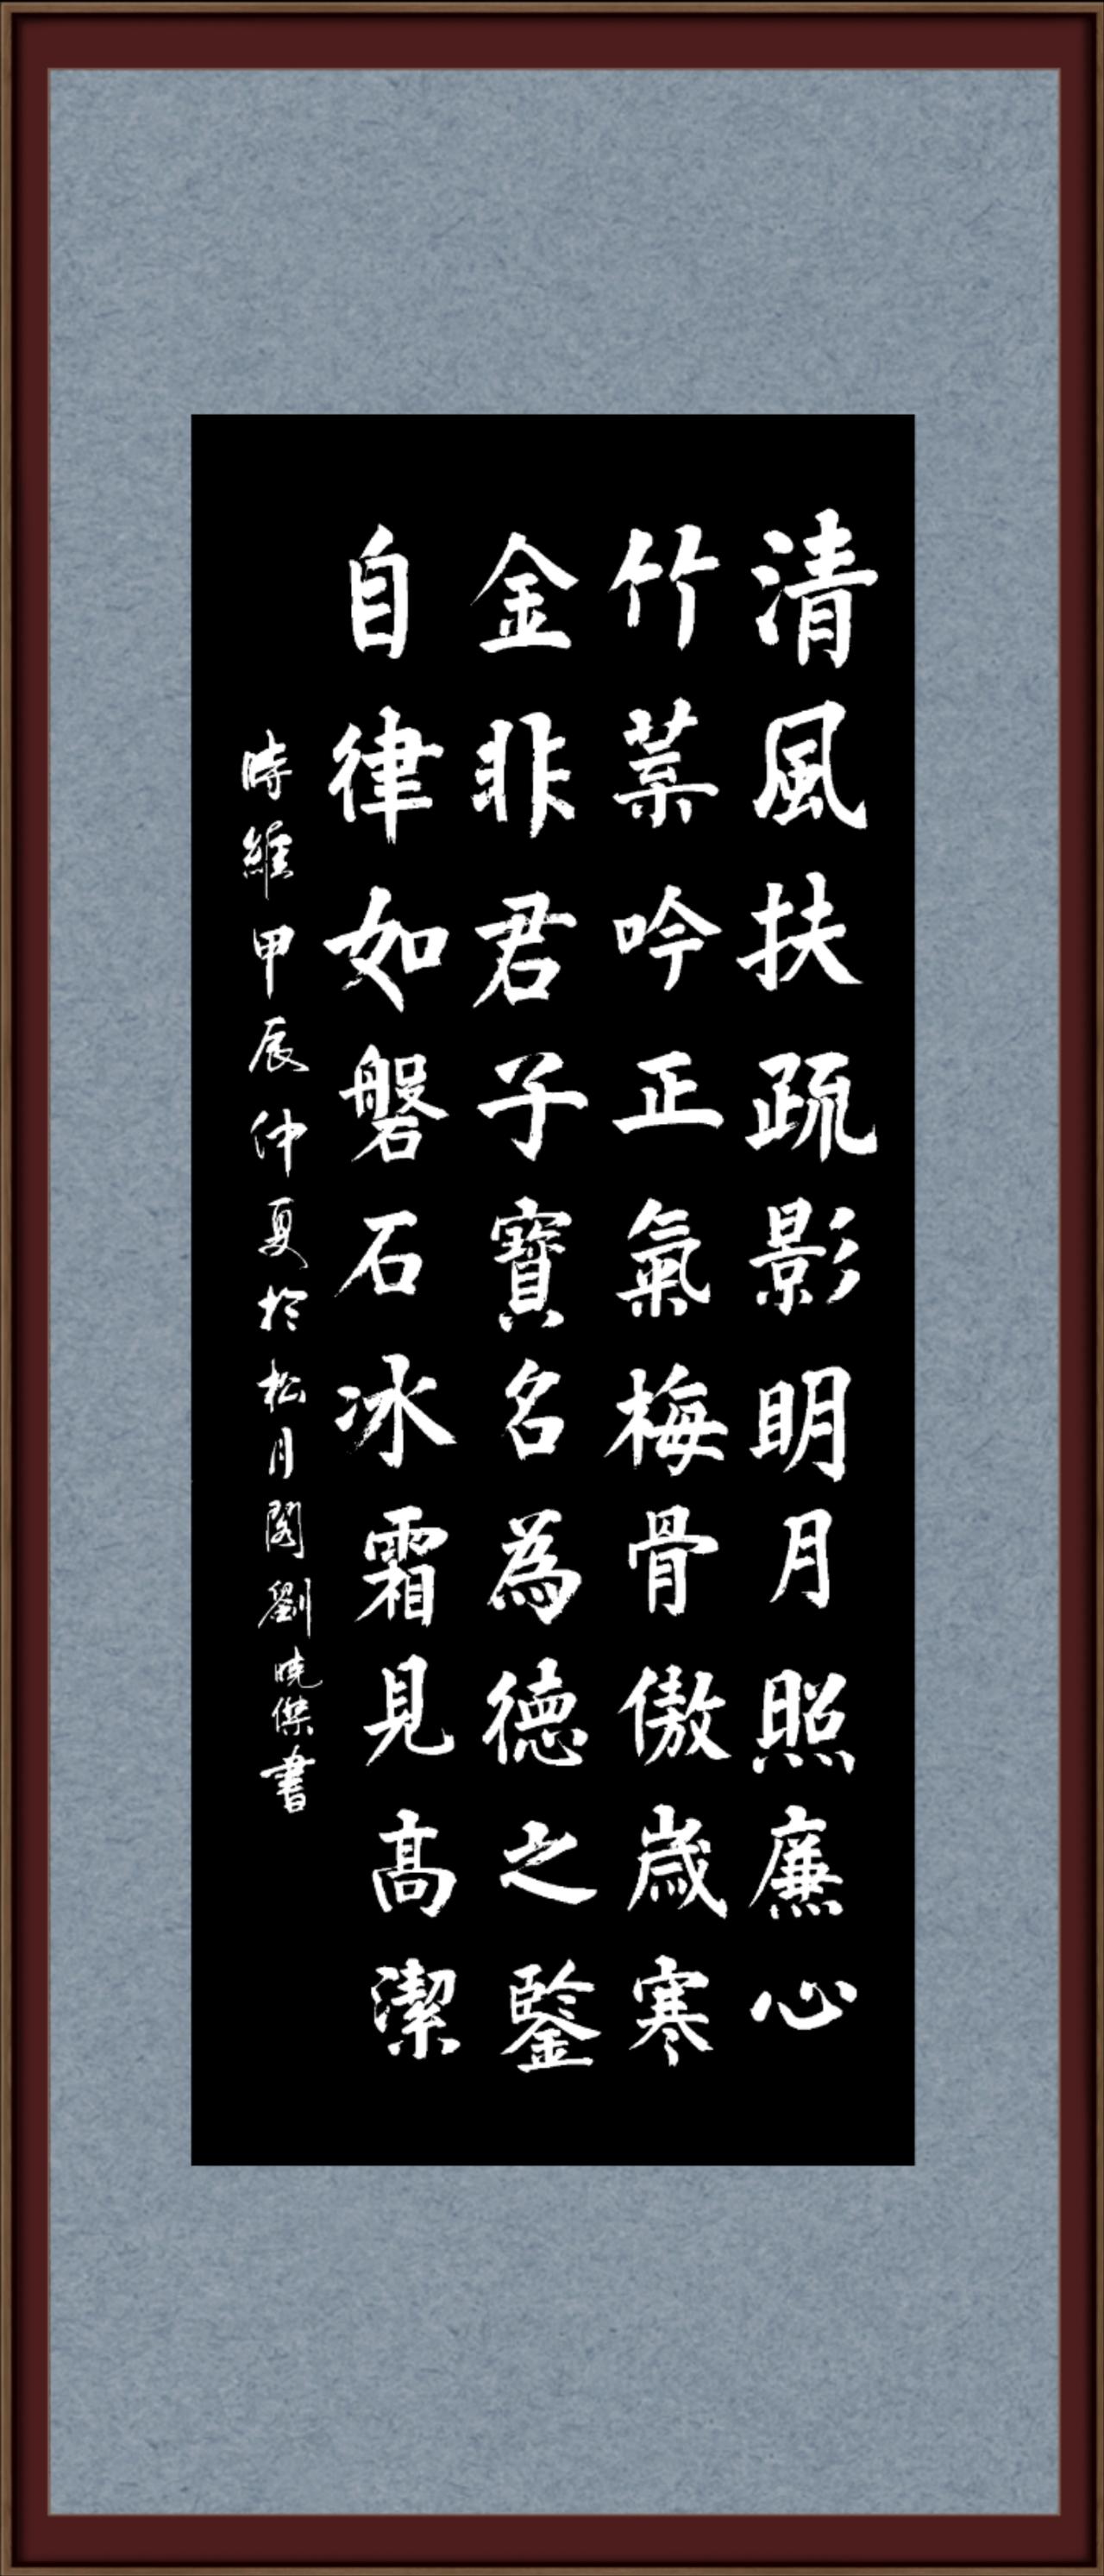 清風扶疏影明月照廉心
竹葉吟正氣梅骨傲歲寒
金非君子寶名為德之鑒
自律如磐石冰霜見高潔
時維甲辰仲夏於松月閣劉曉傑書